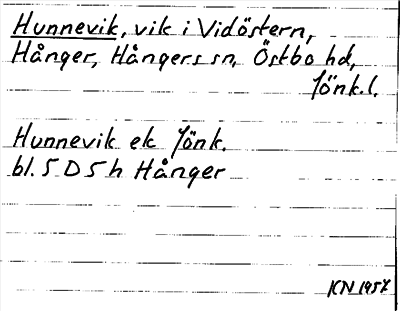 Hunnevik, vik i Vidöstern,
Hånger, Hångers sn, Östbo hd,
Jönk.l.
Hunnevik ek Jönk.
bl. 5 D 5 h Hånger
KN 1957